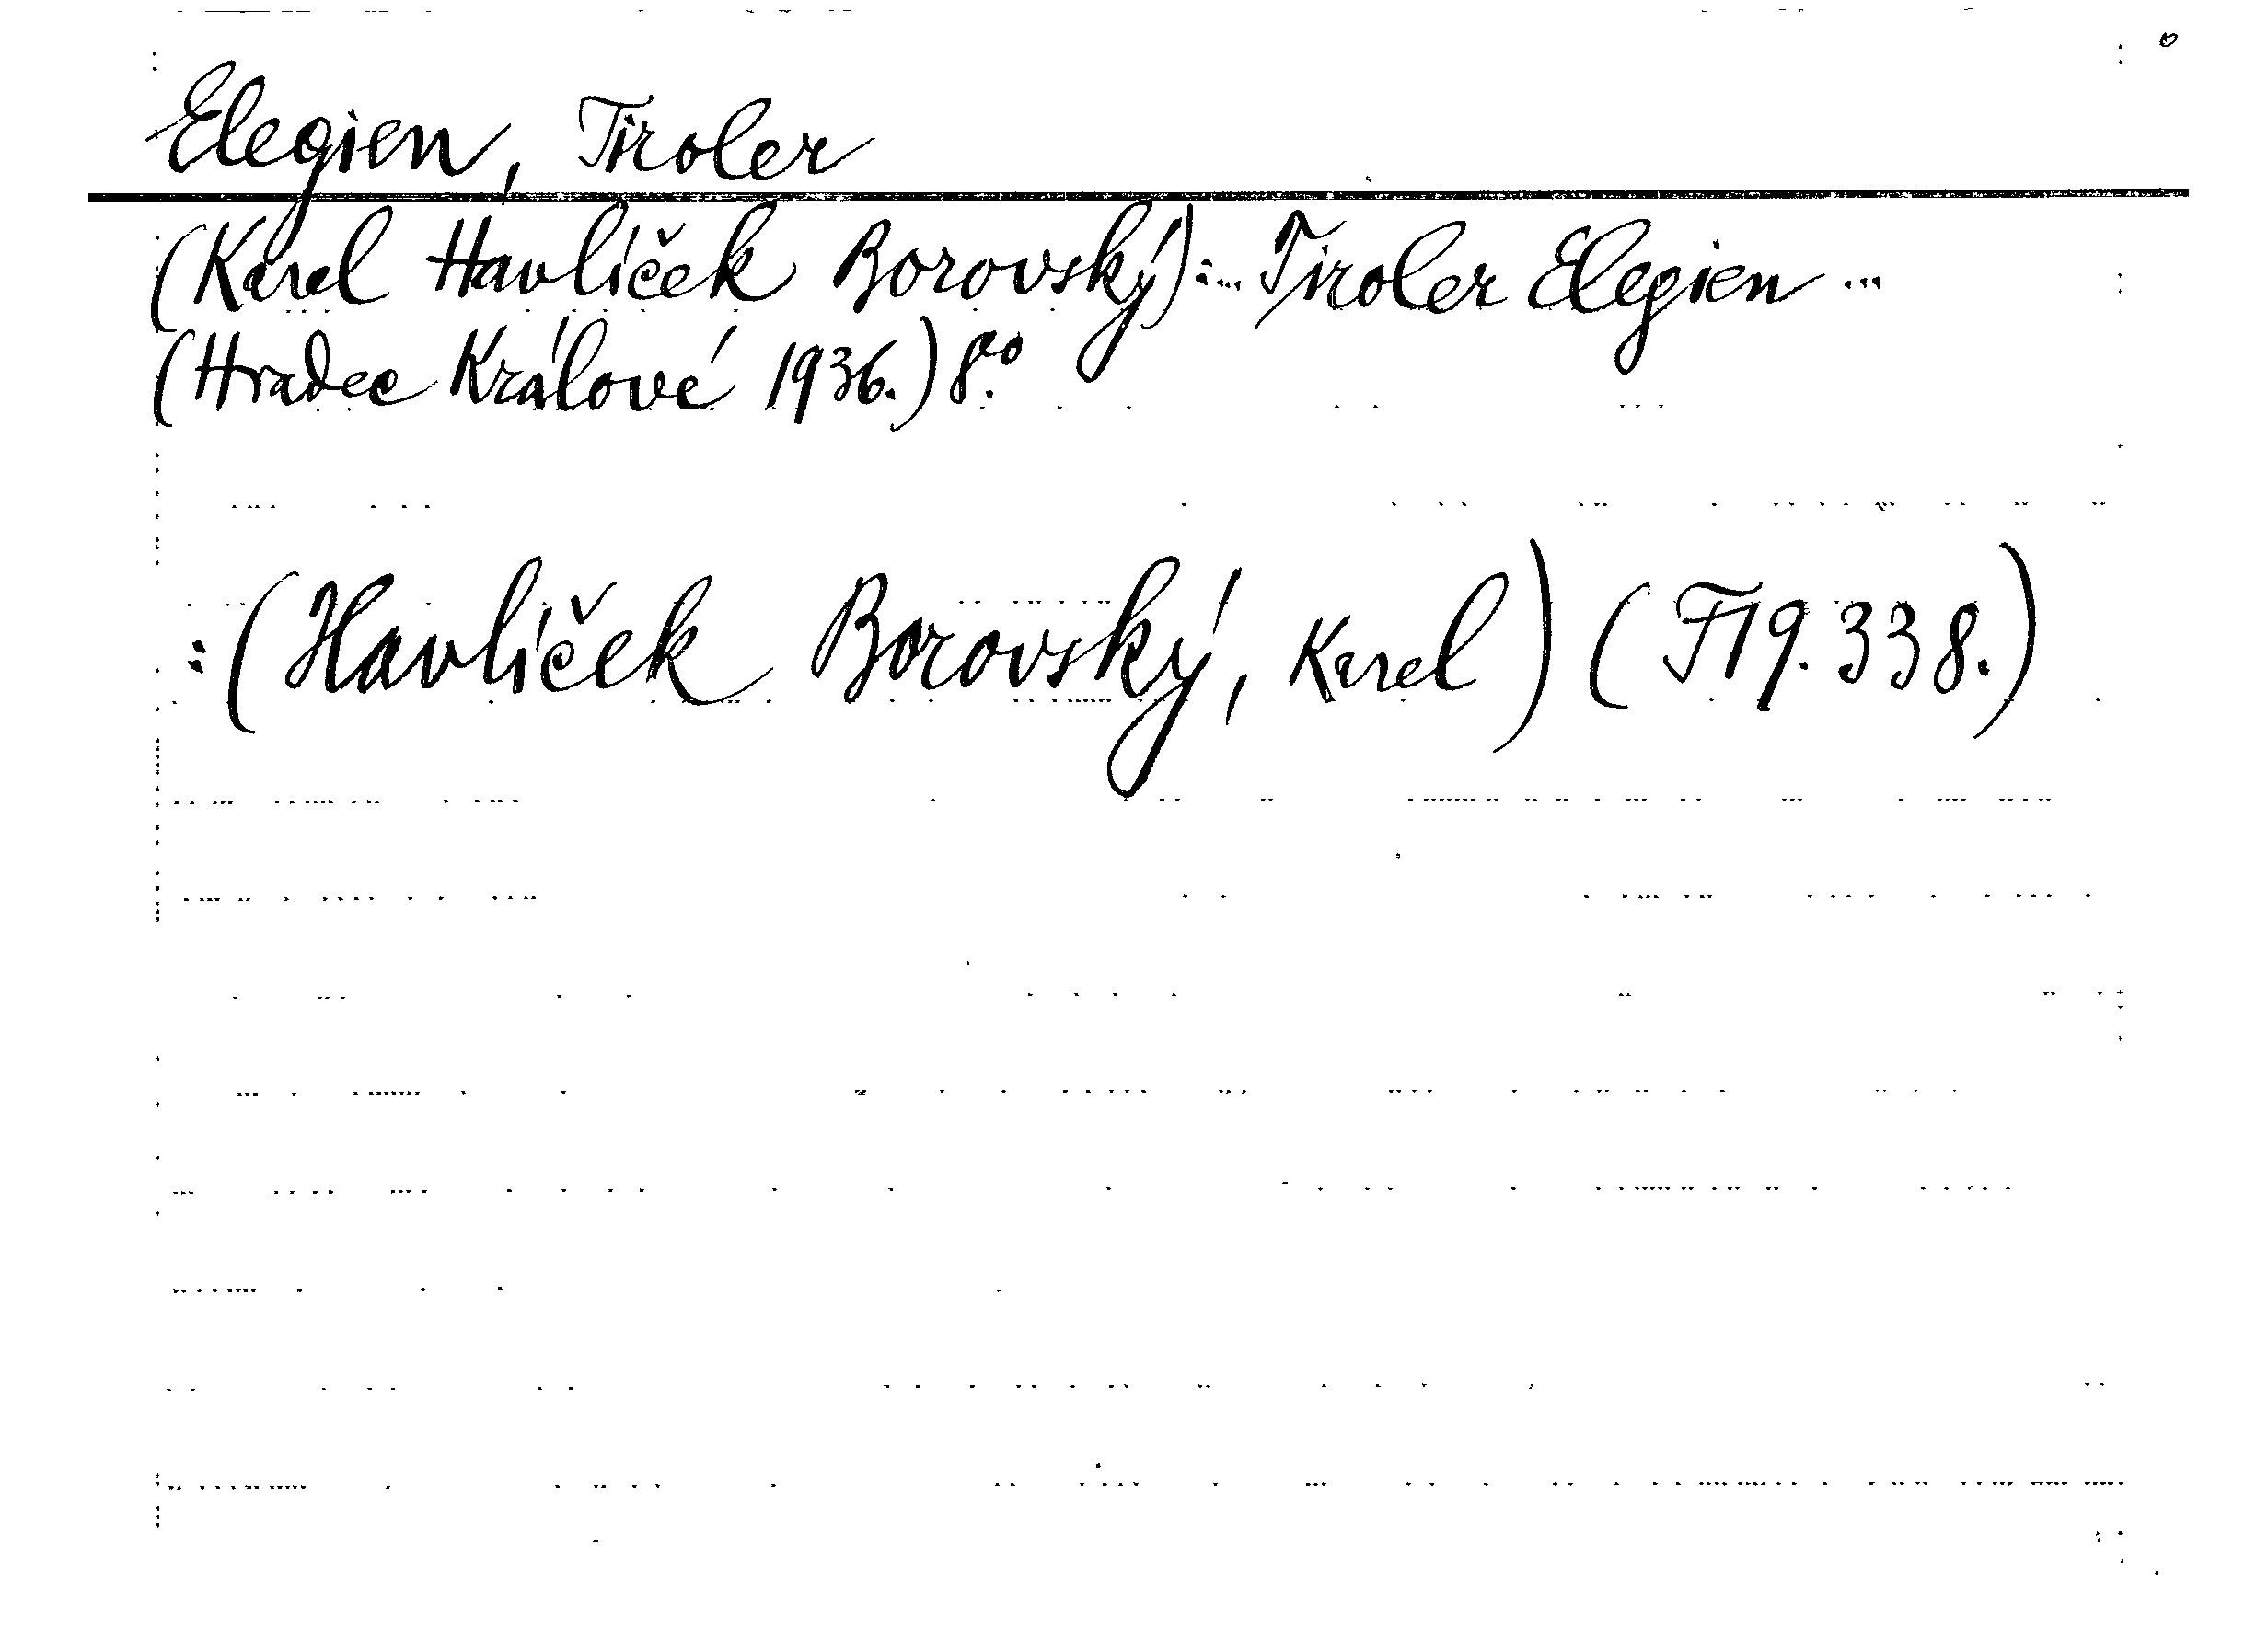 Elegien, Tiroler
(Karel Havlíček Borovský):... Tiroler Elegien ...
(Hradec Králové 1936.) 8.°
:(Havlíček Borovský, Karel) (F19.338.)